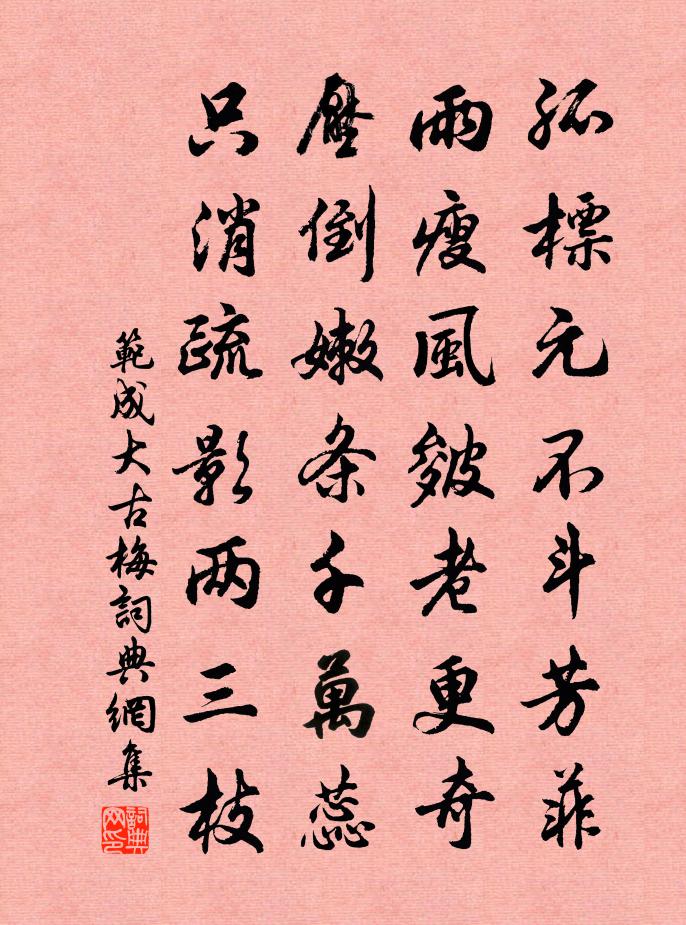 孤標元不斗芳菲
雨瘦風皴老更奇
壓倒嫩条千萬蕊
只消疏影两三枝
範成大古梅詞典網集
詞典网印